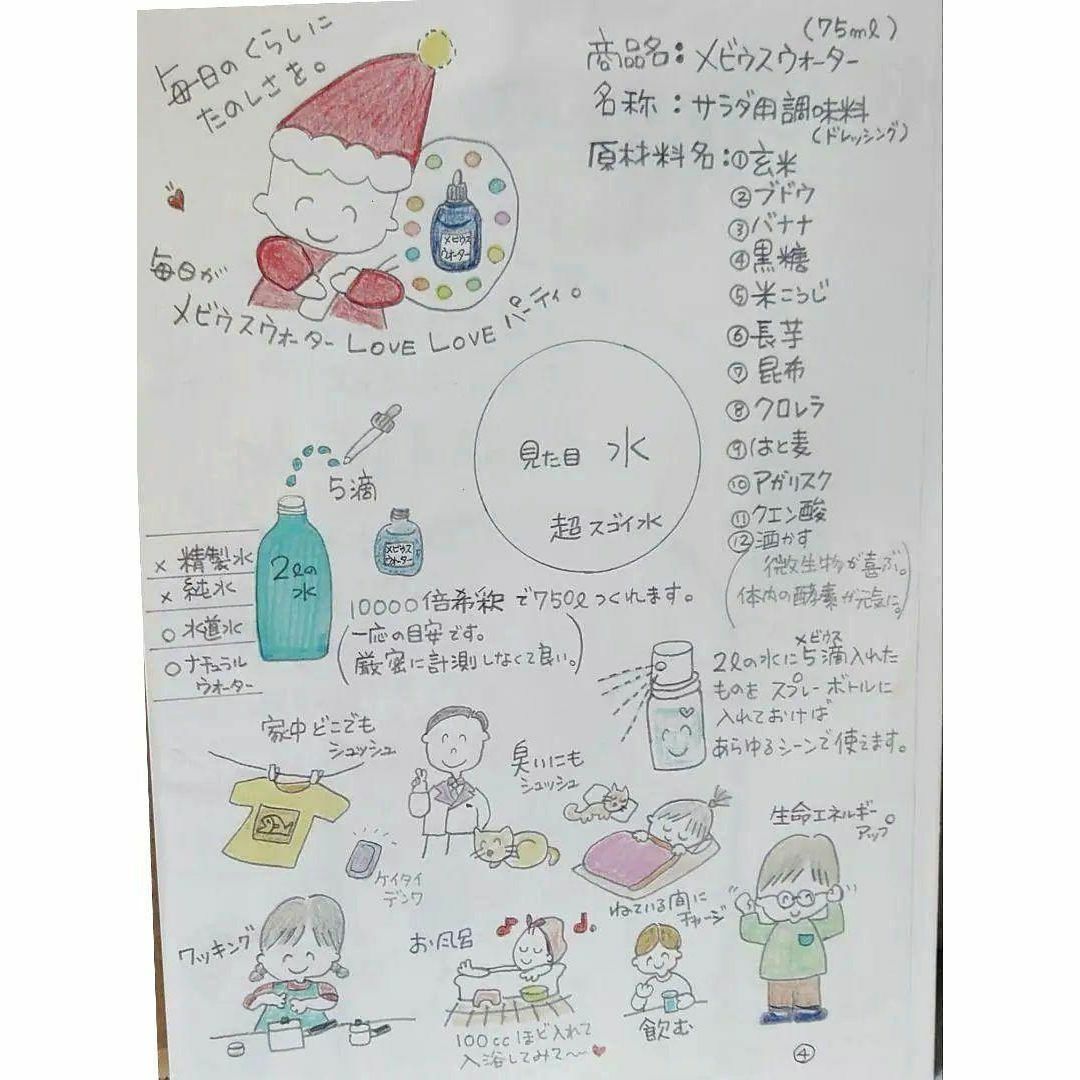 毎日のくらしに
たのしさを。
毎日が
メビウスウォーター LOVE LOVE パーティ。
メビウス
ウォーター
(75ml)
商品名：メビウスウォーター
名称：サラダ用調味料
(ドレッシング)
原材料名：①玄米
②ブドウ
③バナナ
④黒糖
⑤米こうじ
⑥長芋
⑦昆布
⑧クロレラ
⑨はと麦
⑩アガリスク
⑪クエン酸
⑫酒かす
(微生物が喜ぶ。
体内の酵素が元気に。)
見た目 水
超スゴイ水
5滴
2lの
水
メビウス
ウォーター
×精製水
×純水
○水道水
○ナチュラル
ウォーター
10000倍希釈で750lつくれます。
(一応の目安です。
厳密に計測しなくて良い。)
メビウス
2lの水に5滴入れた
ものをスプレーボトルに
入れておけば
あらゆるシーンで使えます。
家中どこでも
シュッシュ
臭いにも
シュッシュ
ケイタイ
デンワ
ねている間に
チャージ
生命エネルギー
アップ。
ワッキング
お風呂
100ccほど入れて
入浴してみて〜♥
飲む
④